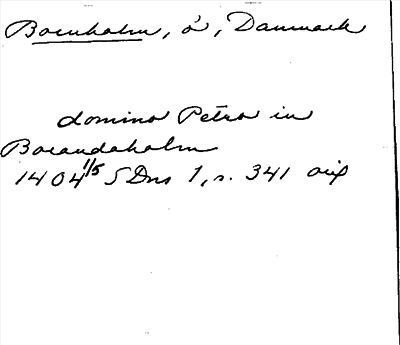 Bornholm, ö, Danmark
domino Petro in
Borandaholm
1404 11/5 SDns 1, s. 341 orig